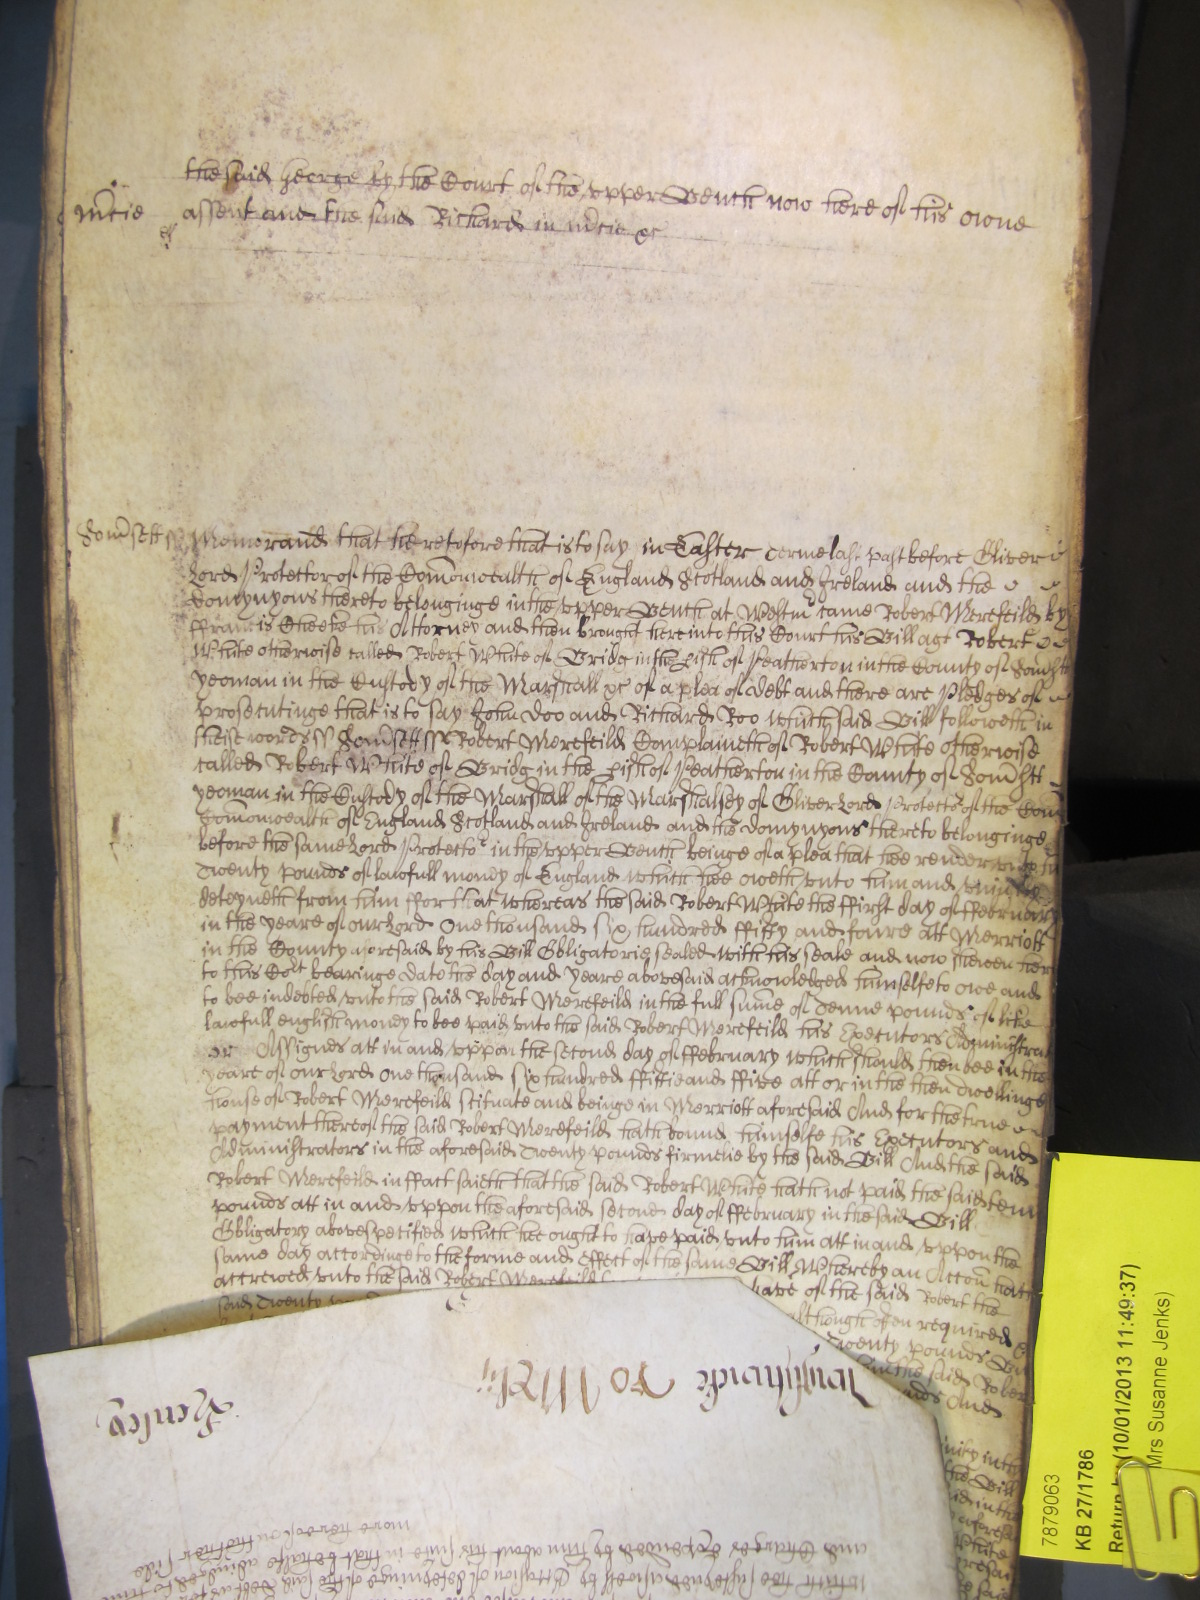 the said George by the Court of the upper Bench now here of his owne
m̃cie assent and the said Richard in m̃cie &c
Som̃sett ss Memorand that heretofore that is to say in Easter terme last past before Oliver
Lord Protector of the Com̃onwealth of England Scotland and Ireland and the
Domynyons thereto belonginge in the upper Bench at Westm̃ came Robert Merefeild by
ffrancis his Attorney and then brought here into this Court his Bill agt Robert
White otherwise called Robert White of Bridg in the pish of Peatherton in the County of Som̃sett
yeoman in the Custody of the Marshall &c of a plea of debt and there are Pledges of
prosecutinge that is to say John Doo and Richard Roo which said Bill followeth in
theise words ss Som̃sett ss Robert Merefeild Complaineth of Robert White otherwise
called Robert White of Bridg in the pish of Peatherton in the County of Som̃sett
yeoman in the Custody of the Marshall of the Marshalsey of Oliver Lord Protector of the Com
Com̃onwealth of England Scotland and Ireland and the Domynyons thereto belonginge
before the same Lord Protector in the upper Bench beinge of a plea that hee render unto him
Twenty pounds of lawfull money of England which hee oweth unto him and
deteyneth from him ffor that whereas the said Robert White the ffirst day of ffebruary
in the yeare of our Lord One thousand six hundred ffifty and foure att Merriott
in the County aforesaid by his Bill Obligatorie sealed with his seale and now shewen here
to this Cort bearinge date the day and yeare abovesaid acknowledged himselfe to owe and
to bee indebted unto the said Robert Merefeild in the full sum̃e of Tenne pounds of like
lawfull english money to bee paid unto the said Robert Merefeild his Executors Administrat
or Assignes att in and uppon the second day of ffebruary which should then bee in the
yeare of our Lord One thousand six hundred ffiftie and ffive att or in the then dwellinge
house of Robert Merefeild scituate and beinge in Merriott aforesaid And for the true
payment thereof the said Robert Merefeild hath bound himselfe his Executors and
Administrators in the aforesaid Twenty pounds firmelie by the said Bill And the said
Robert Merefeild in ffact saieth that the said Robert White hath not paid the said tenn
pounds att in and uppon the aforesaid second day of ffebruary in the said Bill
Obligatory abovespecified which hee ought to have paid unto him att in and uppon the
same day accordinge to the forme and effect of the same Bill Whereby an Accõn hath
accrewed unto the said Robert Merefeild have of the said Robert the
said Twenty
although often required
Twenty pounds
the said Robert
And
To
Henley
and Charges Expended by him about his suite in that behalfe adiudged
more heereof on thother side
7879063
KB 27/1786
Return by (10/01/2013 11:49:37)
Mrs Susanne Jenks)